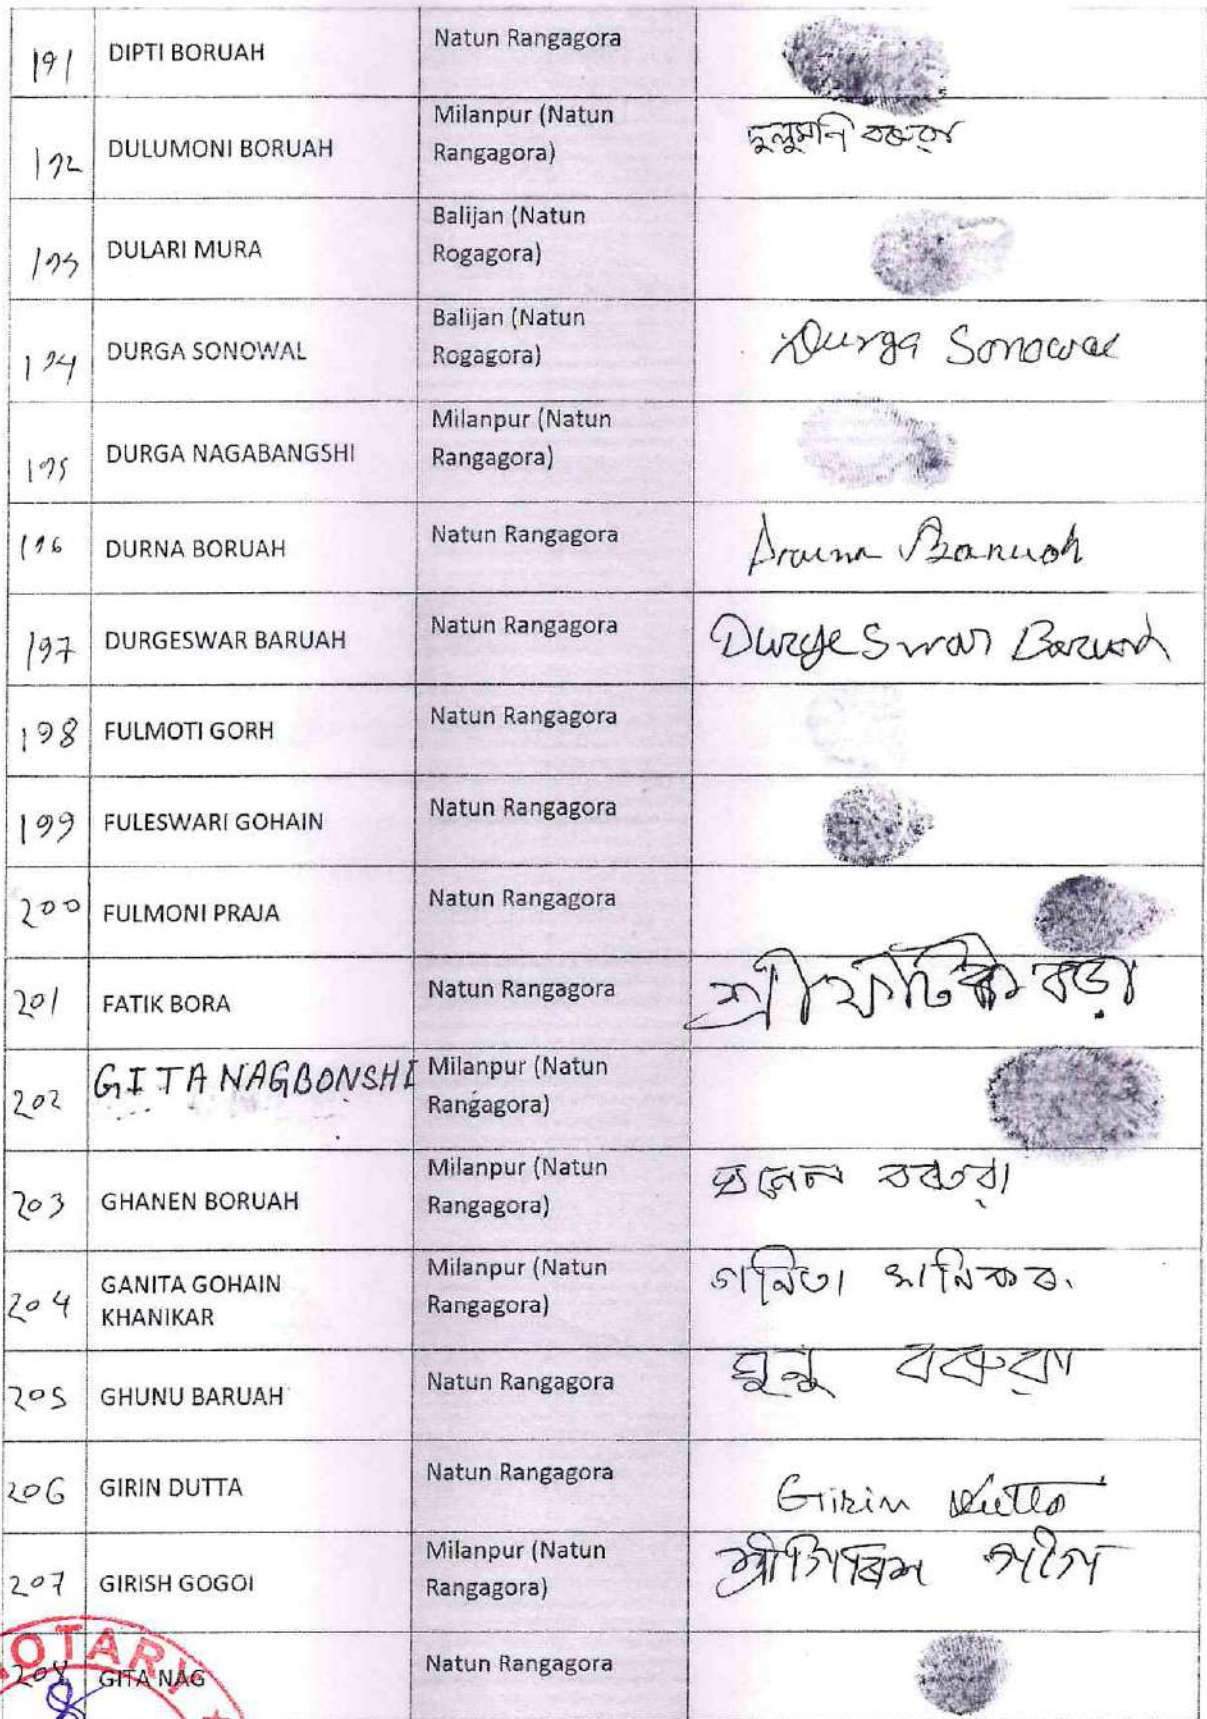 191 DIPTI BORUAH Natun Rangagora
192 DULUMONI BORUAH Milanpur (Natun Rangagora) দুলুমনি বৰুৱা
193 DULARI MURA Balijan (Natun Rogagora)
194 DURGA SONOWAL Balijan (Natun Rogagora) Durga Sonowal
195 DURGA NAGABANGSHI Milanpur (Natun Rangagora)
196 DURNA BORUAH Natun Rangagora Baruah
197 DURGESWAR BARUAH Natun Rangagora Durgeswar Baruah
198 FULMOTI GORH Natun Rangagora
199 FULESWARI GOHAIN Natun Rangagora
200 FULMONI PRAJA Natun Rangagora
201 FATIK BORA Natun Rangagora শ্ৰী ফটিক বড়া
202 GITA NAGBONSHI Milanpur (Natun Rangagora)
203 GHANEN BORUAH Milanpur (Natun Rangagora) ঘনেন বৰুৱা
204 GANITA GOHAIN KHANIKAR Milanpur (Natun Rangagora) গনিতা খানিকৰ
205 GHUNU BARUAH Natun Rangagora ঘুনু বৰুৱা
206 GIRIN DUTTA Natun Rangagora Girin Dutta
207 GIRISH GOGOI Milanpur (Natun Rangagora) শ্ৰী গিৰিশ গগৈ
208 GITA NAG Natun Rangagora
NOTARY